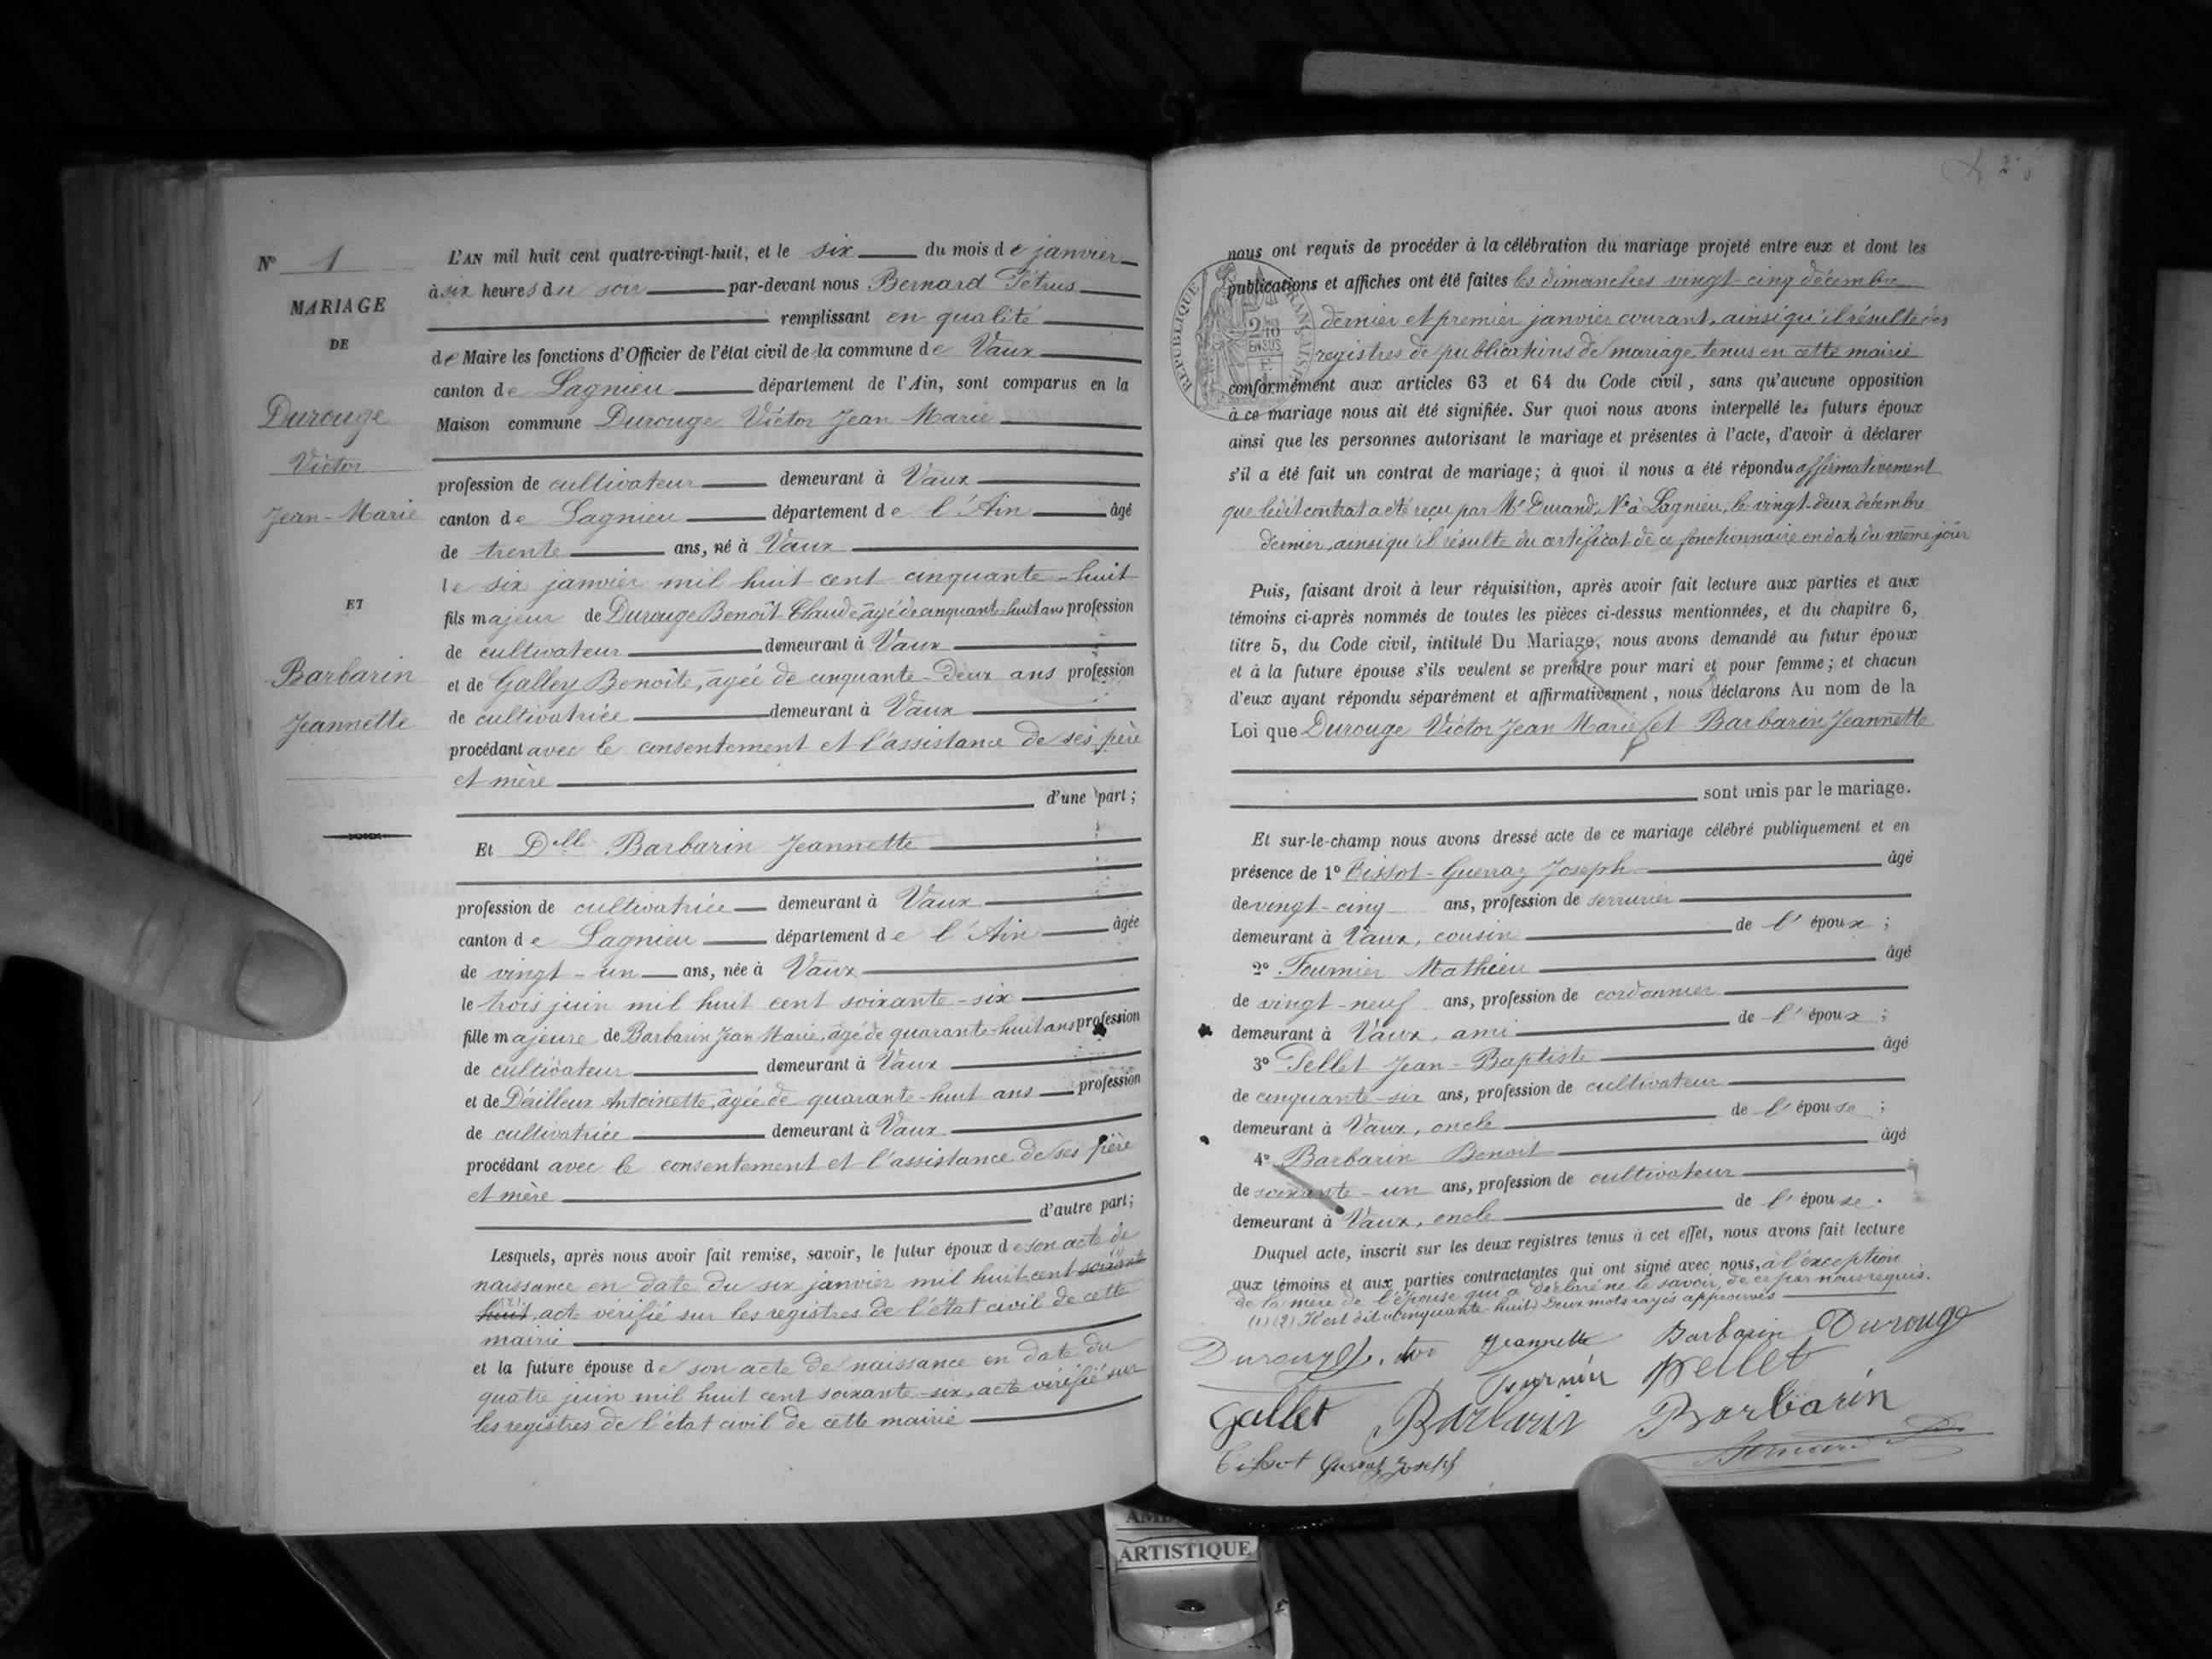 N° 1
MARIAGE
DE
Durouge
Victor
Jean-Marie
ET
Barbarin
Jeannette
L'AN mil huit cent quatre-vingt-huit, et le six du mois de janvier
à six heures du soir par-devant nous Bernard Pétrus
remplissant en qualité
de Maire les fonctions d'Officier de l'état civil de la commune de Vaux
canton de Lagnieu département de l'Ain, sont comparus en la
Maison commune Durouge Victor Jean Marie
profession de cultivateur demeurant à Vaux
canton de Lagnieu département de l'Ain âgé
de trente ans, né à Vaux
le six janvier mil huit cent cinquante-huit
fils majeur de Durouge Benoît Claude, âgé de cinquante-huit ans profession
de cultivateur demeurant à Vaux
et de Galley Benoîte, âgée de cinquante-deux ans profession
de cultivatrice demeurant à Vaux
procédant avec le consentement et l'assistance de ses père
et mère
d'une part ;
Et Delle Barbarin Jeannette
profession de cultivatrice demeurant à Vaux
canton de Lagnieu département de l'Ain âgée
de vingt-un ans, née à Vaux
le trois juin mil huit cent soixante-six
fille majeure de Barbarin Jean Marie, âgé de quarante-huit ans profession
de cultivateur demeurant à Vaux
et de Dérilleux Antoinette, âgée de quarante-huit ans profession
de cultivatrice demeurant à Vaux
procédant avec le consentement et l'assistance de ses père
et mère
d'autre part ;
Lesquels, après nous avoir fait remise, savoir, le futur époux de son acte de
naissance en date du six janvier mil huit cent soixante
huit, acte vérifié sur les registres de l'état civil de cette
mairie
et la future épouse de son acte de naissance en date du
quatre juin mil huit cent soixante-six, acte vérifié sur
les registres de l'état civil de cette mairie
nous ont requis de procéder à la célébration du mariage projeté entre eux et dont les
publications et affiches ont été faites les dimanches vingt-cinq décembre
dernier et premier janvier courant, ainsi qu'il résulte des
registres de publications de mariage tenus en cette mairie
conformément aux articles 63 et 64 du Code civil, sans qu'aucune opposition
à ce mariage nous ait été signifiée. Sur quoi nous avons interpellé les futurs époux
ainsi que les personnes autorisant le mariage et présentes à l'acte, d'avoir à déclarer
s'il a été fait un contrat de mariage ; à quoi il nous a été répondu affirmativement
que ledit contrat a été reçu par Me Durand, Nre à Lagnieu, le vingt-deux décembre
dernier, ainsi qu'il résulte du certificat de ce fonctionnaire en date du même jour
Puis, faisant droit à leur réquisition, après avoir fait lecture aux parties et aux
témoins ci-après nommés de toutes les pièces ci-dessus mentionnées, et du chapitre 6,
titre 5, du Code civil, intitulé Du Mariage, nous avons demandé au futur époux
et à la future épouse s'ils veulent se prendre pour mari et pour femme ; et chacun
d'eux ayant répondu séparément et affirmativement, nous déclarons Au nom de la
Loi que Durouge Victor Jean Marie et Barbarin Jeannette
sont unis par le mariage.
Et sur-le-champ nous avons dressé acte de ce mariage célébré publiquement et en
présence de 1° Bissot-Guerraz Joseph âgé
de vingt-cinq ans, profession de serrurier
demeurant à Vaux, cousin de l'époux ;
2° Fournier Mathieu âgé
de vingt-neuf ans, profession de cordonnier
demeurant à Vaux, ami de l'époux ;
3° Pellet Jean-Baptiste âgé
de cinquante-six ans, profession de cultivateur
demeurant à Vaux, oncle de l'épouse ;
4° Barbarin Benoit âgé
de soixante-un ans, profession de cultivateur
demeurant à Vaux, oncle de l'épouse.
Duquel acte, inscrit sur les deux registres tenus à cet effet, nous avons fait lecture
aux témoins et aux parties contractantes qui ont signé avec nous, à l'exception
de la mère de l'épouse qui a déclaré ne le savoir, de ce par nous requis.
(1) (2) Il est dit « cinquante-huit » Deux mots rayés approuvés
Jeannette Barbarin Durouge
Fournier Pellet
Gallet Barbarin Barbarin
Bissot Guerraz Joseph
RÉPUBLIQUE FRANÇAISE
AM
ARTISTIQUE